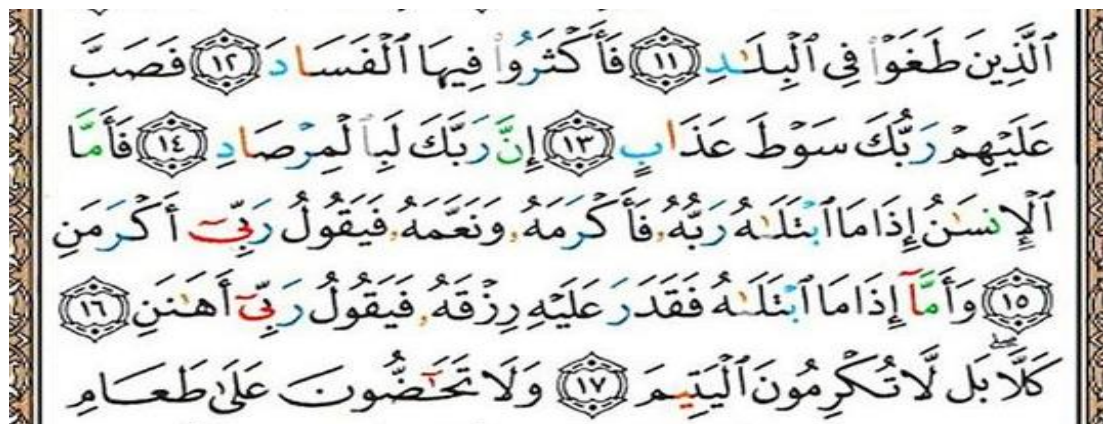 ٱلَّذِينَ طَغَوْا۟ فِى ٱلْبِلَـٰدِ ١١ فَأَكْثَرُوا۟ فِيهَا ٱلْفَسَادَ ١٢ فَصَبَّ
عَلَيْهِمْ رَبُّكَ سَوْطَ عَذَابٍ ١٣ إِنَّ رَبَّكَ لَبِٱلْمِرْصَادِ ١٤ فَأَمَّا
ٱلْإِنسَـٰنُ إِذَا مَا ٱبْتَلَىٰهُ رَبُّهُۥ فَأَكْرَمَهُۥ وَنَعَّمَهُۥ فَيَقُولُ رَبِّىٓ أَكْرَمَنِ
١٥ وَأَمَّآ إِذَا مَا ٱبْتَلَىٰهُ فَقَدَرَ عَلَيْهِ رِزْقَهُۥ فَيَقُولُ رَبِّىٓ أَهَـٰنَنِ ١٦
كَلَّا ۖ بَل لَّا تُكْرِمُونَ ٱلْيَتِيمَ ١٧ وَلَا تَحَـٰٓضُّونَ عَلَىٰ طَعَامِ